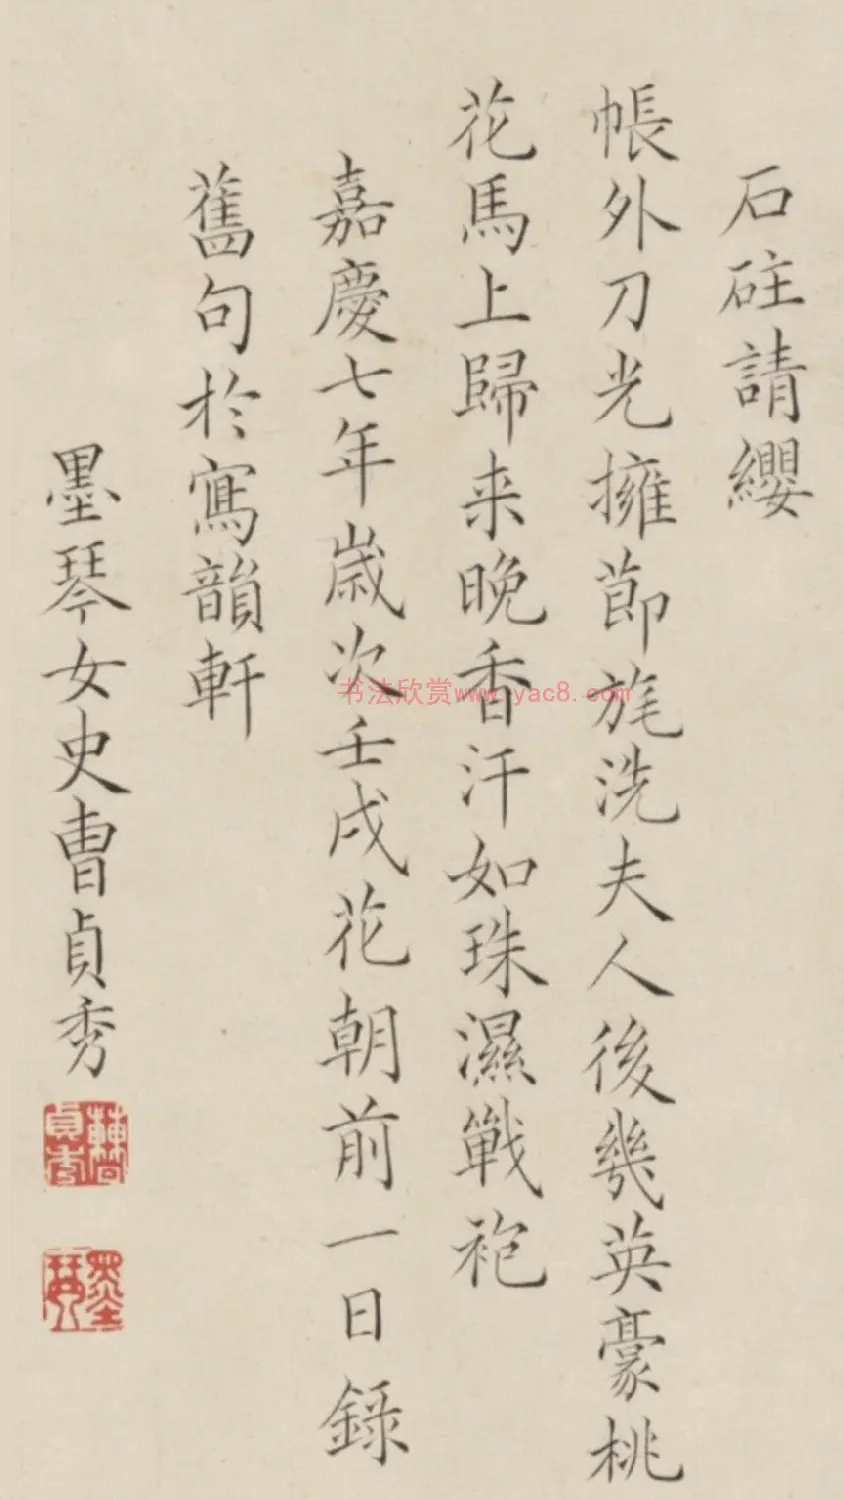 石砫請纓
帳外刀光擁節旄洗夫人後幾英豪桃
花馬上歸来晚香汗如珠濕戰袍
嘉慶七年歲次壬戌花朝前一日錄
舊句於寫韻軒
墨琴女史曹貞秀
书法欣赏www.yac8.com
墨琴